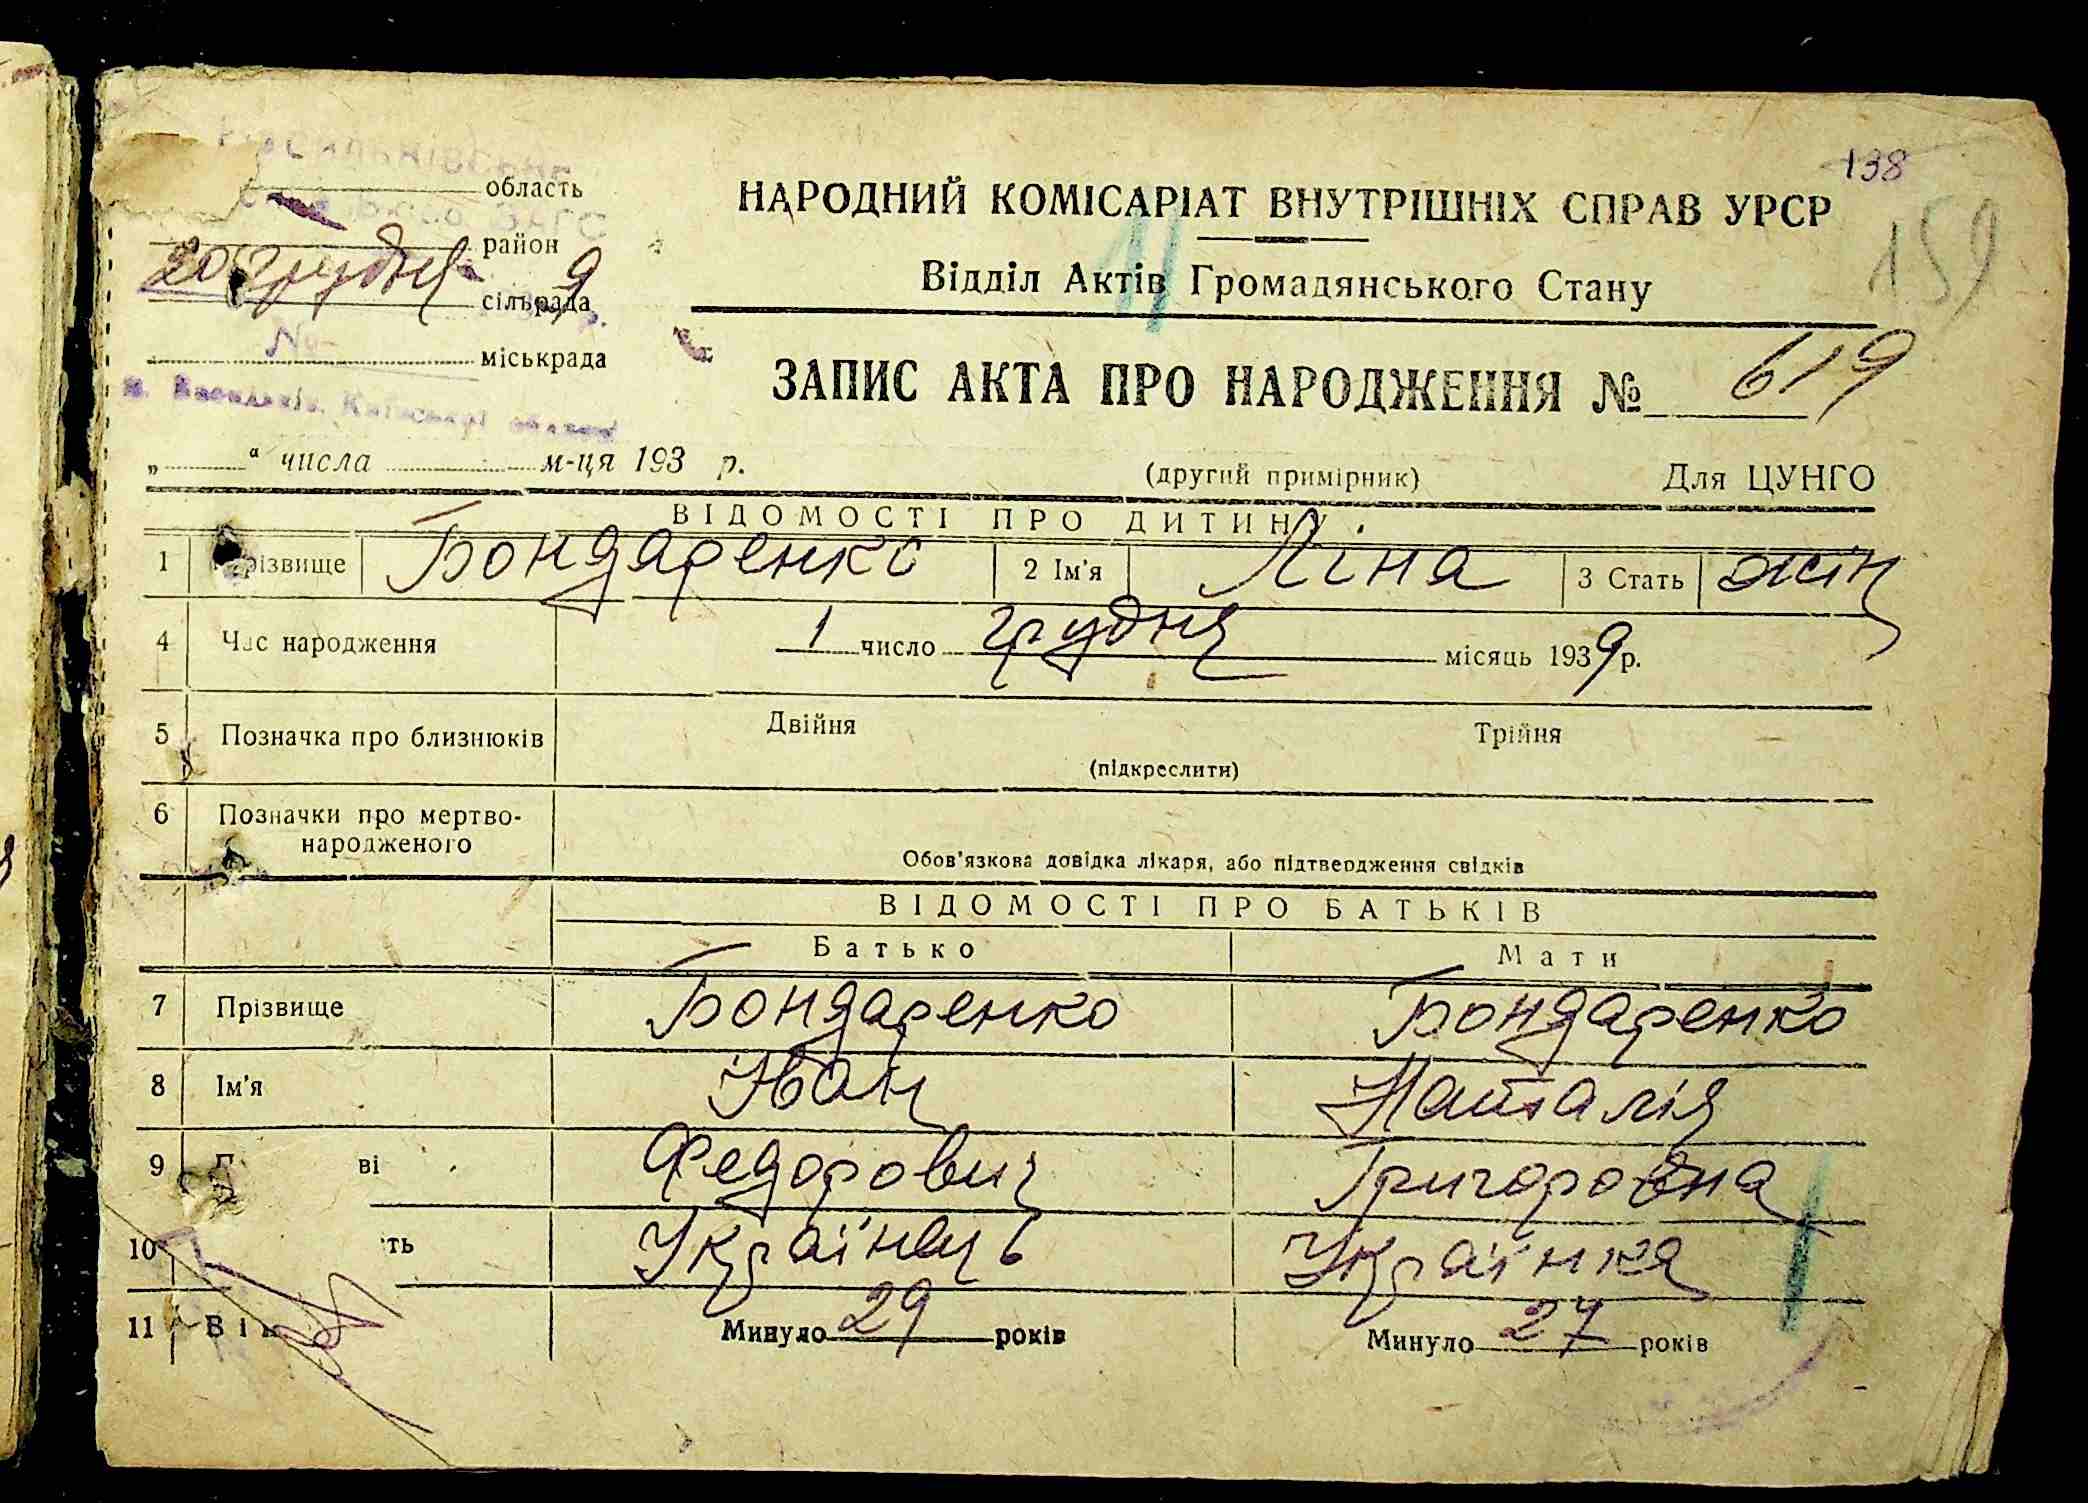 138
159
область
НАРОДНИЙ КОМІСАРІАТ ВНУТРІШНІХ СПРАВ УРСР
район
20 грудня 9
сільрада
Відділ Актів Громадянського Стану
11
№
міськрада
ЗАПИС АКТА ПРО НАРОДЖЕННЯ № 619
м. Васильків, Київської області
„ “ числа м-ця 193 р.
(другий примірник) Для ЦУНГО
ВІДОМОСТІ ПРО ДИТИНУ
1 Прізвище Бондаренко 2 Ім'я Ліна 3 Стать жін
4 Час народження 1 число грудня місяць 1939 р.
5 Позначка про близнюків Двійня Трійня
(підкреслити)
6 Позначки про мертво-
народженого
Обов'язкова довідка лікаря, або підтвердження свідків
ВІДОМОСТІ ПРО БАТЬКІВ
Батько Мати
7 Прізвище Бондаренко Бондаренко
8 Ім'я Іван Наталія
9 П ві Федорович Григоровна
10 ть Українець Українка
11 Вік Минуло 29 років Минуло 27 років